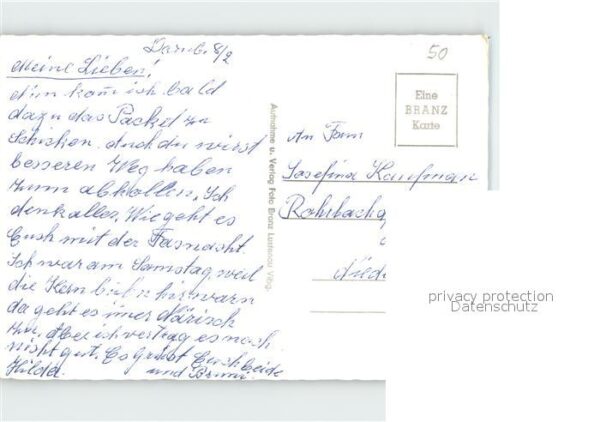 Darnb. 8/2
Meine Lieben!
Nun kom ich bald
dazu das Packet zu
schicken. Auch du wirst
besseren Weg haben
zum abhollen. Ich
denk alles. Wie geht es
Euch mit der Fasnacht.
Ich war am Samstag weil
die hier warn
da geht es imer Närisch
zu. Aber ich vertrag es noch
nicht gut. Es grüsst Euch beide
Hilde und Bruno.
50
Eine
BRANZ
Karte
Aufnahme u. Verlag Foto Branz Lustenau Vlbg.
An Fam
Josefina Kaufman
Rohrbach
Nide
privacy protection
Datenschutz